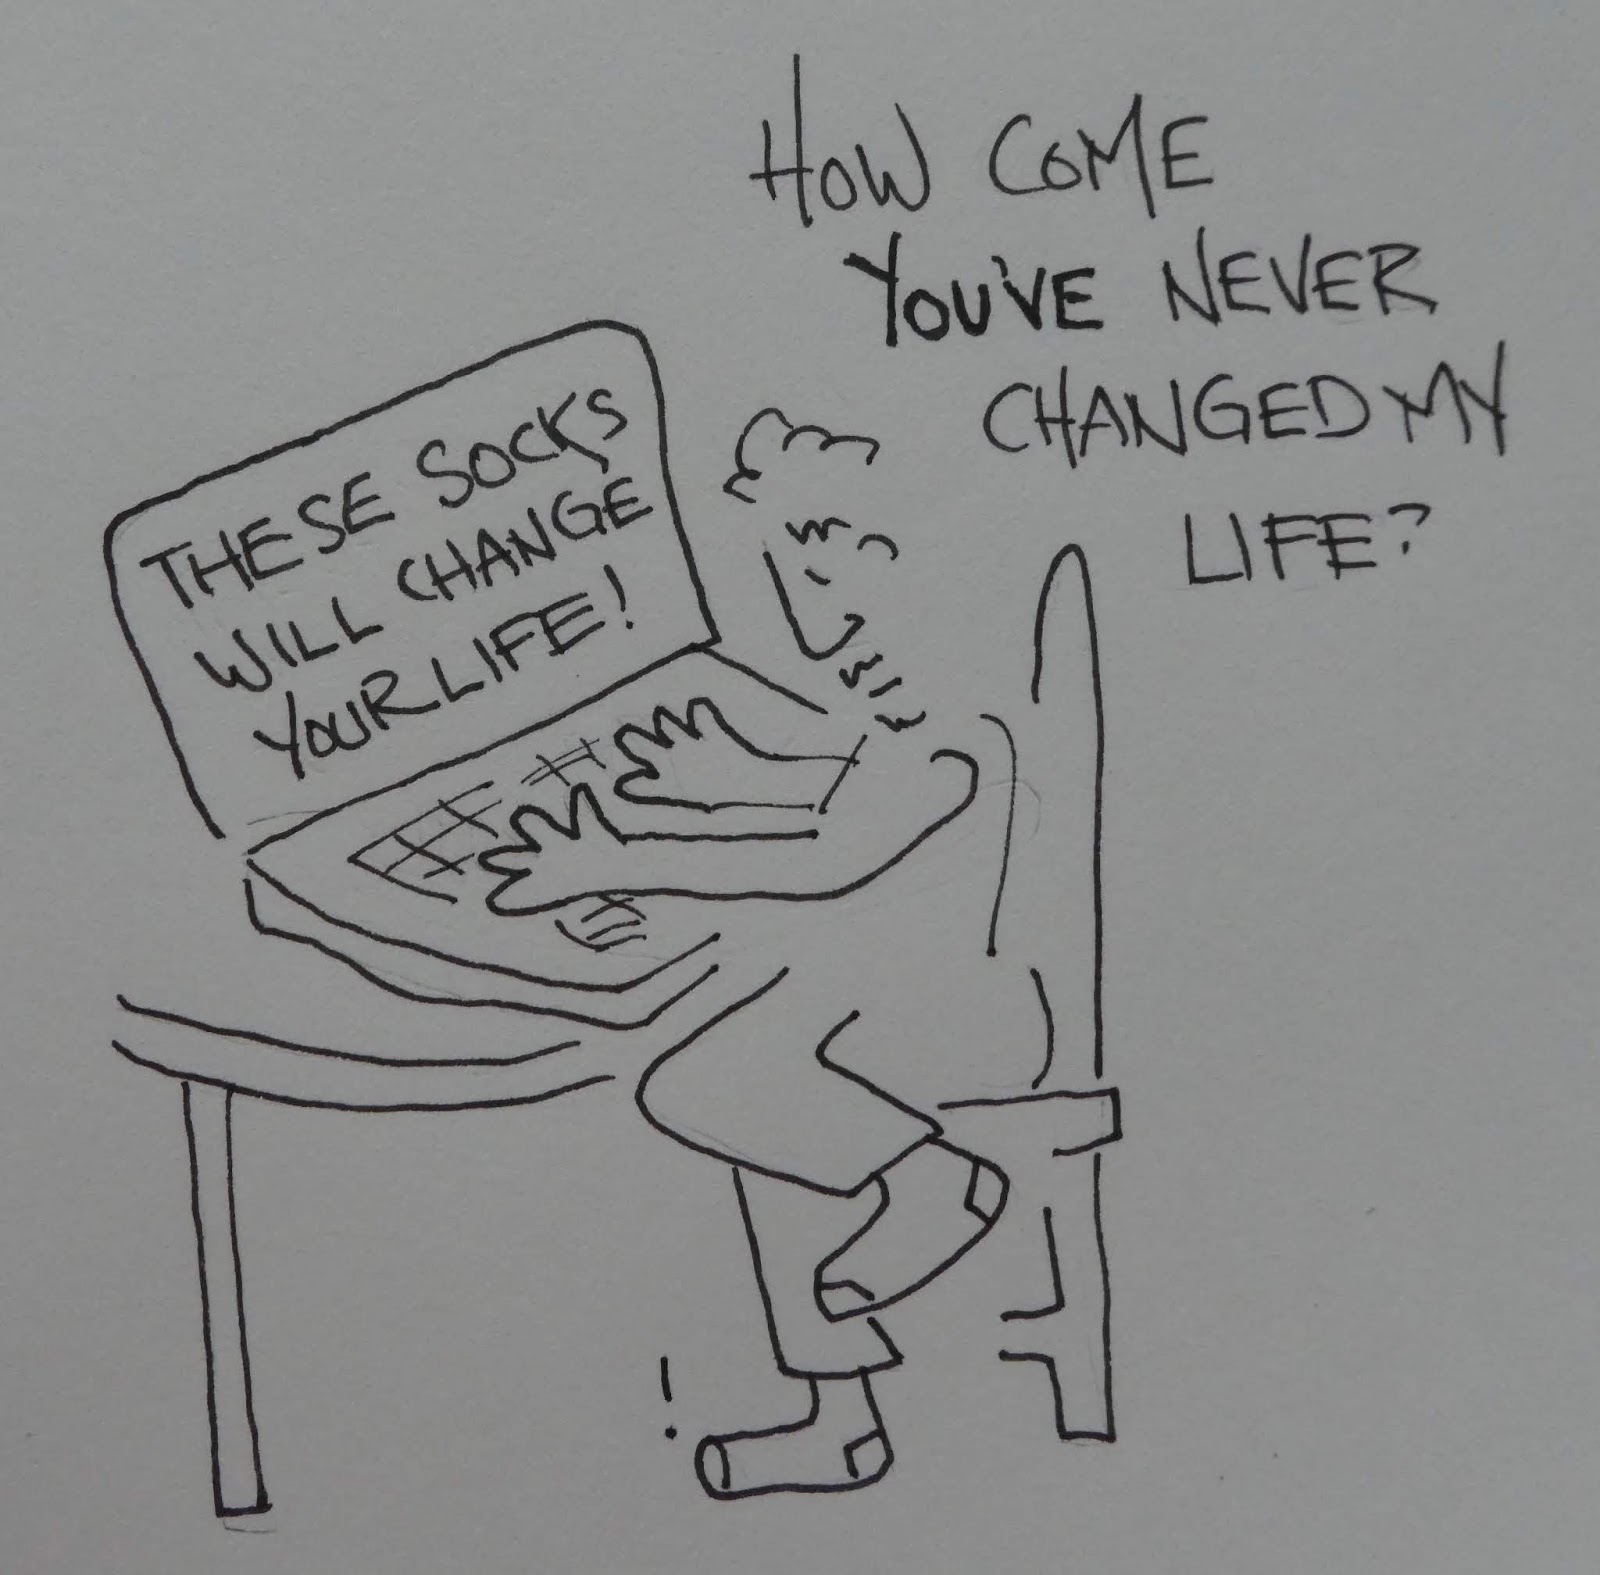 HOW COME
YOU'VE NEVER
CHANGED MY
LIFE?
THESE SOCKS
WILL CHANGE
YOUR LIFE!
!